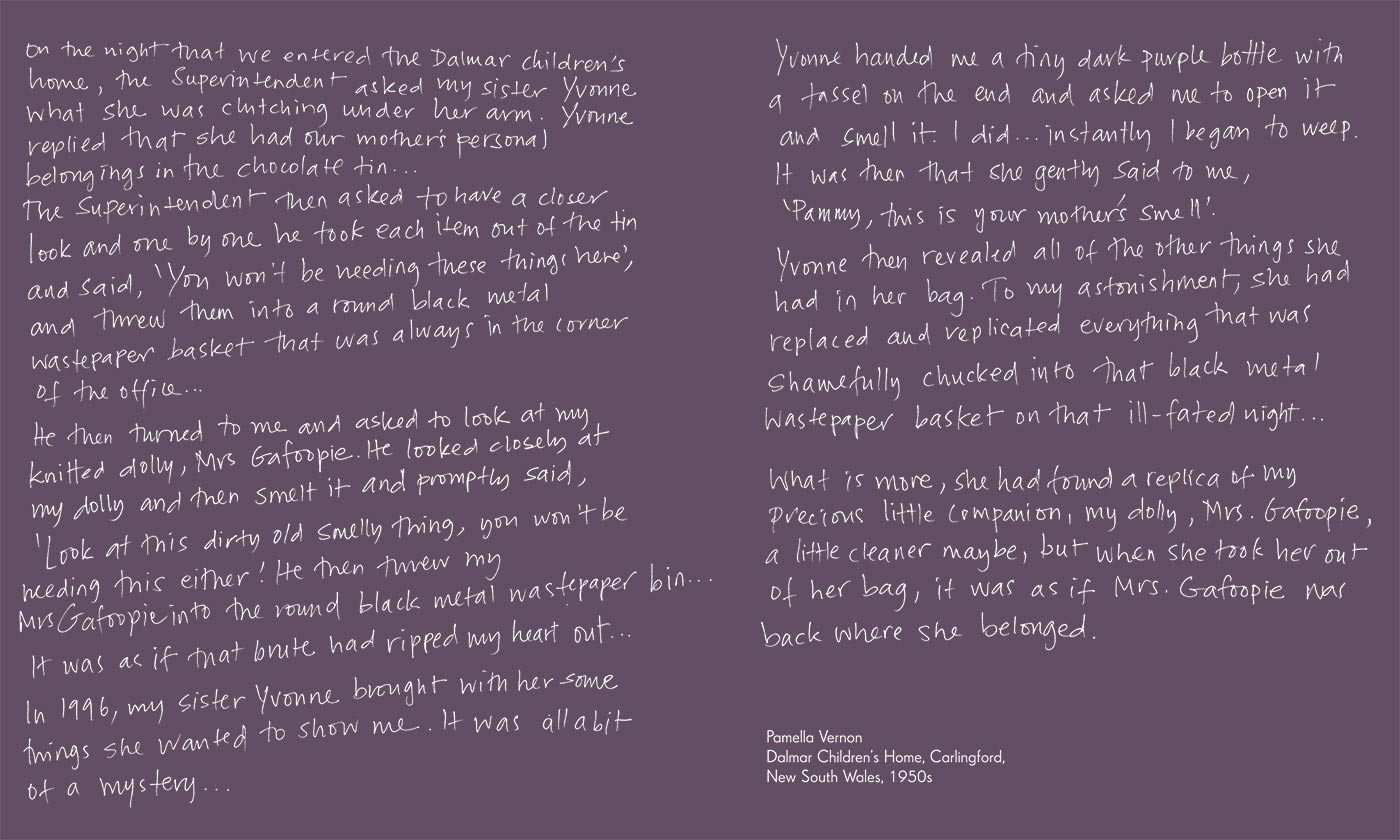 On the night that we entered the Dalmar children's
home, the Superintendent asked my sister Yvonne
what she was clutching under her arm. Yvonne
replied that she had our mother's personal
belongings in the chocolate tin...
The Superintendent then asked to have a closer
look and one by one he took each item out of the tin
and said, 'You won't be needing these things here',
and threw them into a round black metal
wastepaper basket that was always in the corner
of the office...
He then turned to me and asked to look at my
knitted dolly, Mrs Gafoopie. He looked closely at
my dolly and then smelt it and promptly said,
'Look at this dirty old smelly thing, you won't be
needing this either! He then threw my
Mrs Gafoopie into the round black metal wastepaper bin...
It was as if that brute had ripped my heart out...
In 1996, my sister Yvonne brought with her some
things she wanted to show me. It was all a bit
of a mystery...
Yvonne handed me a tiny dark purple bottle with
a tassel on the end and asked me to open it
and smell it. I did... instantly I began to weep.
It was then that she gently said to me,
'Pammy, this is your mother's smell'.
Yvonne then revealed all of the other things she
had in her bag. To my astonishment, she had
replaced and replicated everything that was
shamefully chucked into that black metal
wastepaper basket on that ill-fated night...
What is more, she had found a replica of my
precious little companion, my dolly, Mrs. Gafoopie,
a little cleaner maybe, but when she took her out
of her bag, it was as if Mrs. Gafoopie was
back where she belonged.
Pamella Vernon
Dalmar Children's Home, Carlingford,
New South Wales, 1950s